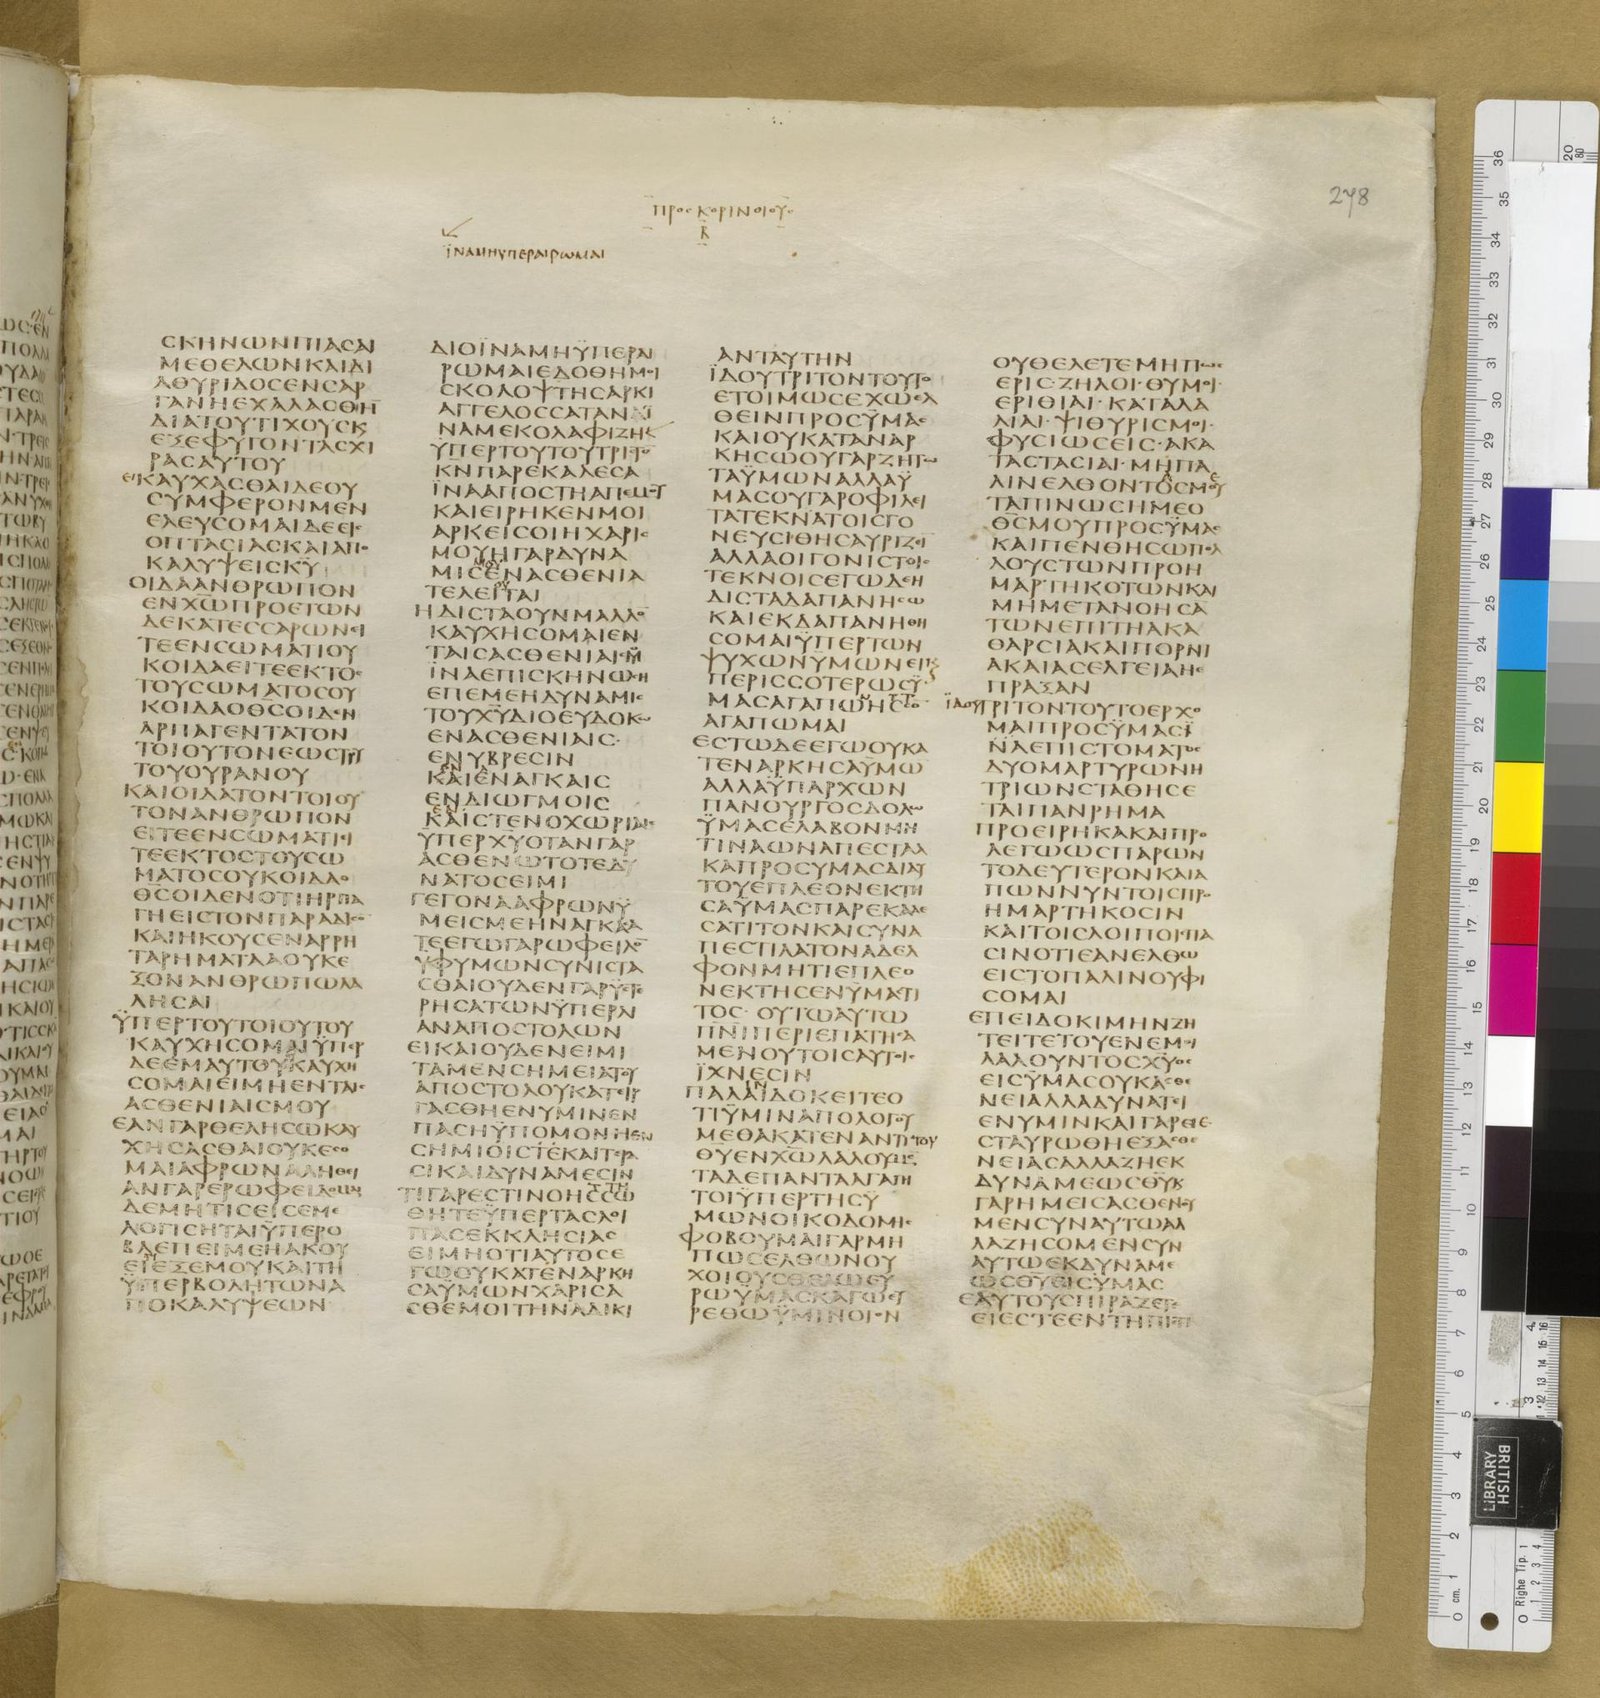 278
ΠΡΟϹΚΟΡΙΝΘΙΟΥϹ
Β
ΪΝΑΜΗΥΠΕΡΑΙΡΩΜΑΙ
ϹΚΗΝΩΝΠΙΑϹΑΙ
ΜΕΘΕΛΩΝΚΑΙΔΙ
ΑΘΥΡΙΔΟϹΕΝϹΑΡ
ΓΑΝΗΕΧΑΛΑϹΘΗ
ΔΙΑΤΟΥΤΙΧΟΥϹΚ
ΕΞΕΦΥΓΟΝΤΑϹΧΙ
ΡΑϹΑΥΤΟΥ
ΕΙΚΑΥΧΑϹΘΑΙΔΕΟΥ
ϹΥΜΦΕΡΟΝΜΕΝ
ΕΛΕΥϹΟΜΑΙΔΕΕΙϹ
ΟΠΤΑϹΙΑϹΚΑΙΑΠΟ
ΚΑΛΥΨΕΙϹΚΥ
ΟΙΔΑΑΝΘΡΩΠΟΝ
ΕΝΧΩΠΡΟΕΤΩΝ
ΔΕΚΑΤΕϹϹΑΡΩΝΕΙ
ΤΕΕΝϹΩΜΑΤΙΟΥ
ΚΟΙΔΑΕΙΤΕΕΚΤΟϹ
ΤΟΥϹΩΜΑΤΟϹΟΥ
ΚΟΙΔΑΟΘϹΟΙΔΕΝ
ΑΡΠΑΓΕΝΤΑΤΟΝ
ΤΟΙΟΥΤΟΝΕΩϹΤΡΙΤΟΥ
ΤΟΥΟΥΡΑΝΟΥ
ΚΑΙΟΙΔΑΤΟΝΤΟΙΟΥ
ΤΟΝΑΝΘΡΩΠΟΝ
ΕΙΤΕΕΝϹΩΜΑΤΙΕΙ
ΤΕΕΚΤΟϹΤΟΥϹΩ
ΜΑΤΟϹΟΥΚΟΙΔΑΟ
ΘϹΟΙΔΕΝΟΤΙΗΡΠΑ
ΓΗΕΙϹΤΟΝΠΑΡΑΔΙϹΟ
ΚΑΙΗΚΟΥϹΕΝΑΡΡΗ
ΤΑΡΗΜΑΤΑΑΟΥΚΕ
ΞΟΝΑΝΘΡΩΠΩΛΑ
ΛΗϹΑΙ
ΫΠΕΡΤΟΥΤΟΙΟΥΤΟΥ
ΚΑΥΧΗϹΟΜΑΙΫΠΕΡ
ΔΕΕΜΑΥΤΟΥΟΥΚΑΥΧΗ
ϹΟΜΑΙΕΙΜΗΕΝΤΑΙϹ
ΑϹΘΕΝΙΑΙϹΜΟΥ
ΕΑΝΓΑΡΘΕΛΗϹΩΚΑΥ
ΧΗϹΑϹΘΑΙΟΥΚΕϹΟ
ΜΑΙΑΦΡΩΝΑΛΗΘΕΙ
ΑΝΓΑΡΕΡΩΦΕΙΔΟΜΕ
ΔΕΜΗΤΙϹΕΙϹΕΜΕ
ΛΟΓΙϹΗΤΑΙΫΠΕΡΟ
ΒΛΕΠΕΙΜΕΗΑΚΟΥ
ΕΙΕΞΕΜΟΥΚΑΙΤΗ
ΫΠΕΡΒΟΛΗΤΩΝΑ
ΠΟΚΑΛΥΨΕΩΝ
ΔΙΟΪΝΑΜΗΫΠΕΡΑΙ
ΡΩΜΑΙΕΔΟΘΗΜΟΙ
ϹΚΟΛΟΨΤΗϹΑΡΚΙ
ΑΓΓΕΛΟϹϹΑΤΑΝΑΪ
ΝΑΜΕΚΟΛΑΦΙΖΗ
ΫΠΕΡΤΟΥΤΟΥΤΡΙΤΟ
ΚΝΠΑΡΕΚΑΛΕϹΑ
ΪΝΑΑΠΟϹΤΗΑΠΕΜΟΥ
ΚΑΙΕΙΡΗΚΕΝΜΟΙ
ΑΡΚΕΙϹΟΙΗΧΑΡΙϹ
ΜΟΥΗΓΑΡΔΥΝΑ
ΜΙϹΜΟΥΕΝΑϹΘΕΝΙΑ
ΤΕΛΕΙΤΑΙ
ΗΔΙϹΤΑΟΥΝΜΑΛΛΟ
ΚΑΥΧΗϹΟΜΑΙΕΝ
ΤΑΙϹΑϹΘΕΝΙΑΙϹΜ
ΪΝΑΕΠΙϹΚΗΝΩϹΗ
ΕΠΕΜΕΗΔΥΝΑΜΙϹ
ΤΟΥΧΥΔΙΟΕΥΔΟΚΩ
ΕΝΑϹΘΕΝΙΑΙϹ
ΕΝΥΒΡΕϹΙΝ
ΚΑΙΕΝΑΓΚΑΙϹ
ΕΝΔΙΩΓΜΟΙϹ
ΚΑΙϹΤΕΝΟΧΩΡΙΑΙϹ
ΥΠΕΡΧΥΟΤΑΝΓΑΡ
ΑϹΘΕΝΩΤΟΤΕΔΥ
ΝΑΤΟϹΕΙΜΙ
ΓΕΓΟΝΑΑΦΡΩΝΫ
ΜΕΙϹΜΕΗΝΑΓΚΑϹΑ
ΤΕΕΓΩΓΑΡΩΦΕΙΛΟ
ΥΦΥΜΩΝϹΥΝΙϹΤΑ
ϹΘΑΙΟΥΔΕΝΓΑΡΫϹΤΕ
ΡΗϹΑΤΩΝΫΠΕΡΛΙ
ΑΝΑΠΟϹΤΟΛΩΝ
ΕΙΚΑΙΟΥΔΕΝΕΙΜΙ
ΤΑΜΕΝϹΗΜΕΙΑΤΟΥ
ΑΠΟϹΤΟΛΟΥΚΑΤΕΙΡ
ΓΑϹΘΗΕΝΥΜΙΝΕΝ
ΠΑϹΗΫΠΟΜΟΝΗΕΝ
ϹΗΜΙΟΙϹΤΕΚΑΙΤΕΡΑ
ϹΙΚΑΙΔΥΝΑΜΕϹΙΝ
ΤΙΓΑΡΕϹΤΙΝΟΗϹϹΩ
ΘΗΤΕΫΠΕΡΤΑϹΛΟΙ
ΠΑϹΕΚΚΛΗϹΙΑϹ
ΕΙΜΗΟΤΙΑΥΤΟϹΕ
ΓΩΟΥΚΑΤΕΝΑΡΚΗ
ϹΑΫΜΩΝΧΑΡΙϹΑ
ϹΘΕΜΟΙΤΗΝΑΔΙΚΙ
ΑΝΤΑΥΤΗΝ
ΪΔΟΥΤΡΙΤΟΝΤΟΥΤΟ
ΕΤΟΙΜΩϹΕΧΩΕΛ
ΘΕΙΝΠΡΟϹΫΜΑϹ
ΚΑΙΟΥΚΑΤΑΝΑΡ
ΚΗϹΩΟΥΓΑΡΖΗΤΩ
ΤΑΫΜΩΝΑΛΛΑΫ
ΜΑϹΟΥΓΑΡΟΦΙΛΕΙ
ΤΑΤΕΚΝΑΤΟΙϹΓΟ
ΝΕΥϹΙΘΗϹΑΥΡΙΖΕΙ
ΑΛΛΑΟΙΓΟΝΙϹΤΟΙϹ
ΤΕΚΝΟΙϹΕΓΩΔΕΗ
ΔΙϹΤΑΔΑΠΑΝΗϹΩ
ΚΑΙΕΚΔΑΠΑΝΗΘΗ
ϹΟΜΑΙΫΠΕΡΤΩΝ
ΨΥΧΩΝΫΜΩΝΕΙ
ΠΕΡΙϹϹΟΤΕΡΩϹΫ
ΜΑϹΑΓΑΠΩΗϹϹΟ
ΑΓΑΠΩΜΑΙ
ΕϹΤΩΔΕΕΓΩΟΥΚΑ
ΤΕΝΑΡΚΗϹΑΫΜΩ
ΑΛΛΑΫΠΑΡΧΩΝ
ΠΑΝΟΥΡΓΟϹΔΟΛΩ
ΫΜΑϹΕΛΑΒΟΝΜΗ
ΤΙΝΑΩΝΑΠΕϹΤΑΛ
ΚΑΠΡΟϹΥΜΑϹΔΙΑΥ
ΤΟΥΕΠΛΕΟΝΕΚΤΗ
ϹΑΫΜΑϹΠΑΡΕΚΑΛΕ
ϹΑΤΙΤΟΝΚΑΙϹΥΝΑ
ΠΕϹΤΙΛΑΤΟΝΑΔΕΛ
ΦΟΝΜΗΤΙΕΠΛΕΟ
ΝΕΚΤΗϹΕΝΫΜΑΤΙ
ΤΟϹΟΥΤΩΑΥΤΩ
ΠΝΙΠΕΡΙΕΠΑΤΗϹΑ
ΜΕΝΟΥΤΟΙϹΑΥΤΟΙϹ
ΪΧΝΕϹΙΝ
ΠΑΛΑΙΔΟΚΕΙΤΕΟ
ΤΙΫΜΙΝΑΠΟΛΟΓΟΥ
ΜΕΘΑΚΑΤΕΝΑΝΤΙΤΟΥ
ΘΥΕΝΧΩΛΑΛΟΥΜΕ
ΤΑΔΕΠΑΝΤΑΑΓΑΠΗ
ΤΟΙΫΠΕΡΤΗϹΫ
ΜΩΝΟΙΚΟΔΟΜΗϹ
ΦΟΒΟΥΜΑΙΓΑΡΜΗ
ΠΩϹΕΛΘΩΝΟΥ
ΧΟΙΟΥϹΘΕΛΩΕΥ
ΡΩΫΜΑϹΚΑΓΩΕΥ
ΡΕΘΩΫΜΙΝΟΙΟΝ
ΟΥΘΕΛΕΤΕΜΗΠΩϹ
ΕΡΙϹ·ΖΗΛΟΙ·ΘΥΜΟΙ·
ΕΡΙΘΙΑΙ·ΚΑΤΑΛΑ
ΛΙΑΙ·ΨΙΘΥΡΙϹΜΟΙ·
ΦΥϹΙΩϹΕΙϹ·ΑΚΑ
ΤΑϹΤΑϹΙΑΙ·ΜΗΠΑ
ΛΙΝΕΛΘΟΝΤΟϹΜΟΥ
ΤΑΠΙΝΩϹΗΜΕΟ
ΘϹΜΟΥΠΡΟϹΫΜΑϹ
ΚΑΙΠΕΝΘΗϹΩΠΟΛ
ΛΟΥϹΤΩΝΠΡΟΗ
ΜΑΡΤΗΚΟΤΩΝΚΑΙ
ΜΗΜΕΤΑΝΟΗϹΑ
ΤΩΝΕΠΙΤΗΑΚΑ
ΘΑΡϹΙΑΚΑΙΠΟΡΝΙ
ΑΚΑΙΑϹΕΛΓΕΙΑΗΕ
ΠΡΑΞΑΝ
ΪΔΟΥΤΡΙΤΟΝΤΟΥΤΟΕΡΧΟ
ΜΑΙΠΡΟϹΫΜΑϹΪ
ΝΑΕΠΙϹΤΟΜΑΤΟϹ
ΔΥΟΜΑΡΤΥΡΩΝΗ
ΤΡΙΩΝϹΤΑΘΗϹΕ
ΤΑΙΠΑΝΡΗΜΑ
ΠΡΟΕΙΡΗΚΑΚΑΙΠΡΟ
ΛΕΓΩΩϹΠΑΡΩΝ
ΤΟΔΕΥΤΕΡΟΝΚΑΙΑ
ΠΩΝΝΥΝΤΟΙϹΠΡΟ
ΗΜΑΡΤΗΚΟϹΙΝ
ΚΑΙΤΟΙϹΛΟΙΠΟΙϹΠΑ
ϹΙΝΟΤΙΕΑΝΕΛΘΩ
ΕΙϹΤΟΠΑΛΙΝΟΥΦΙ
ϹΟΜΑΙ
ΕΠΕΙΔΟΚΙΜΗΝΖΗ
ΤΕΙΤΕΤΟΥΕΝΕΜΟΙ
ΛΑΛΟΥΝΤΟϹΧΥΟϹ
ΕΙϹΫΜΑϹΟΥΚΑϹΘΕ
ΝΕΙΑΛΛΑΔΥΝΑΤΕΙ
ΕΝΥΜΙΝΚΑΙΓΑΡΕ
ϹΤΑΥΡΩΘΗΕΞΑϹΘΕ
ΝΕΙΑϹΑΛΛΑΖΗΕΚ
ΔΥΝΑΜΕΩϹΘΥΚ
ΓΑΡΗΜΕΙϹΑϹΘΕΝΟΥ
ΜΕΝϹΥΝΑΥΤΩΑΛ
ΛΑΖΗϹΟΜΕΝϹΥΝ
ΑΥΤΩΕΚΔΥΝΑΜΕ
ΩϹΘΥΕΙϹΫΜΑϹ
ΕΑΥΤΟΥϹΠΙΡΑΖΕΤΕ
ΕΙΕϹΤΕΕΝΤΗΠΙϹΤΙ
BRITISH LIBRARY